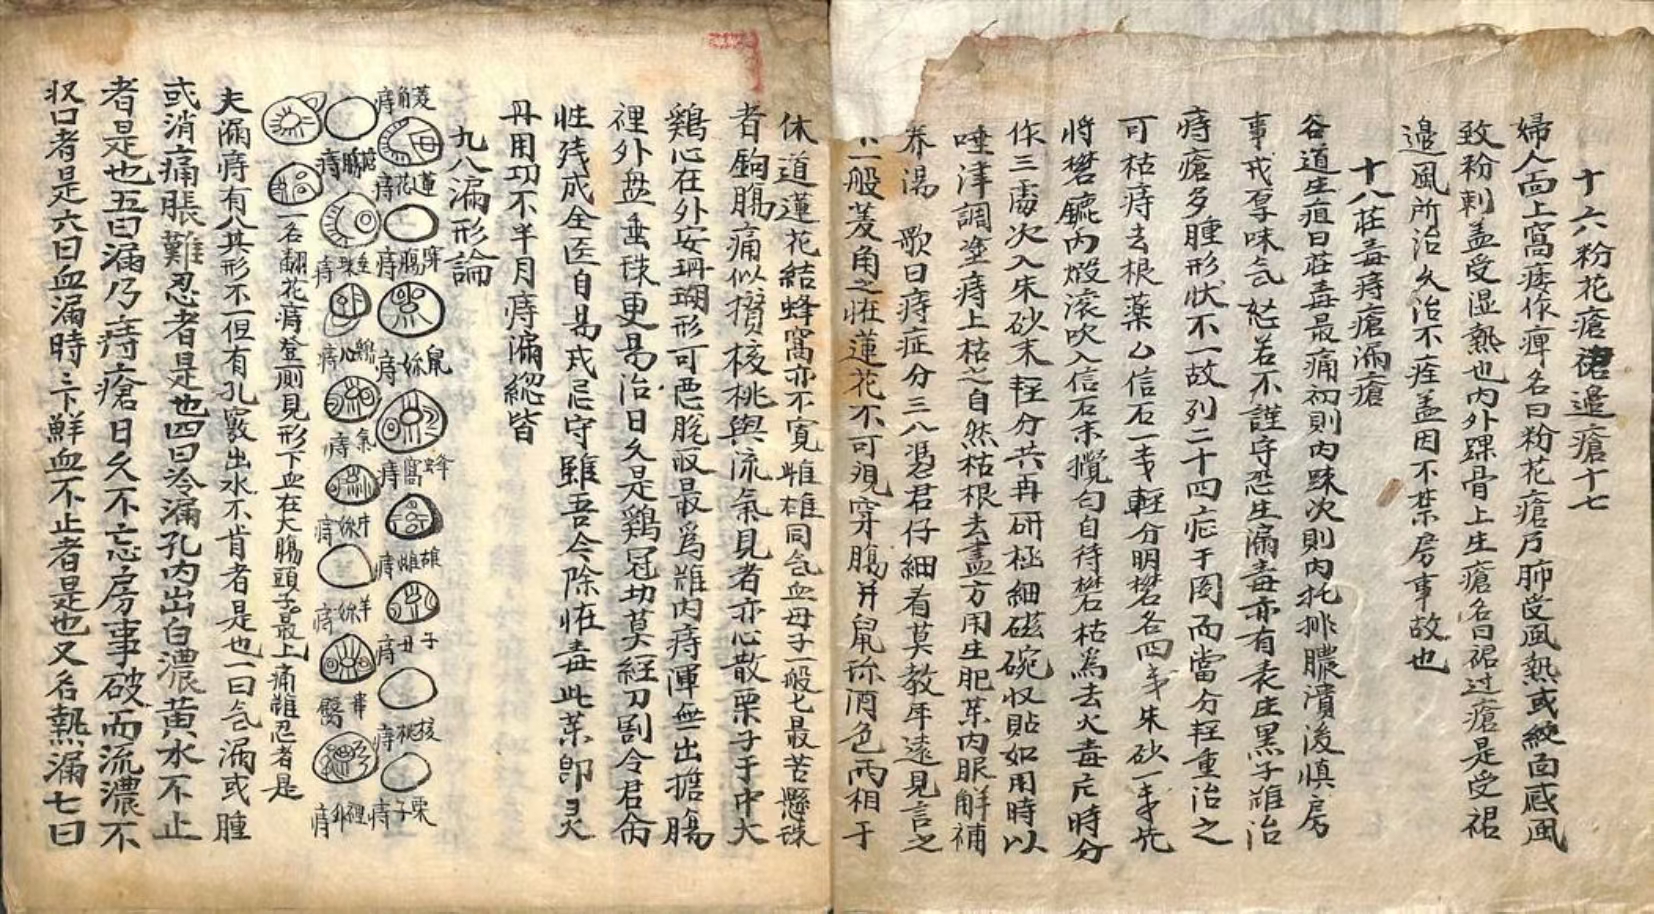 十六粉花瘡裙邉瘡十七
婦人面上窩痿作痺名曰粉花瘡乃肺受風熱或絞面感風
致粉刺盖受湿熱也内外踝骨上生瘡名曰裙过瘡是受裙
邉風所治久治不痊盖因不禁房事故也
十八莊毒痔瘡漏瘡
谷道生疽曰莊毒最痛初則内疎次則内托排膿潰後慎房
事戒厚味气怒若不謹守恐生漏毒亦有表庄黑子雖治
痔瘡多腫形状不一故列二十四症于圖而當分輕重治之
可枯痔去根薬乙信石一戋輕分明礬各四戋朱砂一戋先
將礬鑣内煅滚吹入信石末攪匀自待礬枯為去火毒元時分
作三処次入朱砂末輕分共再研極細磁碗收貼如用時以
唾津調塗痔上枯之自然枯根去盡方用生肥薬内服解補
养湯 歌曰痔症分三八馮君仔細看莫教年遠見言之
不一般菱角之恠蓮花不可覌穿腸并鼠㳽酒色两相于
休道蓮花結蜂窩亦不寛雌雄同气血母子一般七最苦懸珠
者鈎腸痛似攅核桃與流氣見者亦心散栗子于中大
鷄心在外安珊瑚形可恶脱肛最爲雖内痔渾無出擔腸
裡外盘垂珠更易治日久是鷄冠切莫経刀割令君命
性残成全医自易戎忌守雖吾今除恠毒此薬卽灵
丹用功不半月痔漏総皆
九八漏形論
菱角痔
蓮花痔
穿腸痔
鼠㳽痔
蜂窩痔
雄雌痔
子母痔
核桃痔
栗子痔
腸痔
垂珠痔
鷄心痔
氣痔
痔
羊痔
痔
一名翻花痔登厠見形下血在大腸頭子最上痛難忍者是
夫漏痔有八其形不一但有孔竅出水不肯者是也一曰气漏或腫
或消痛脹難忍者是也四曰冷漏孔内出白濃黄水不止
者是也五曰漏乃痔瘡日久不忘房事破而流濃不
収口者是六曰血漏時〻下鮮血不止者是也又名熱漏七曰